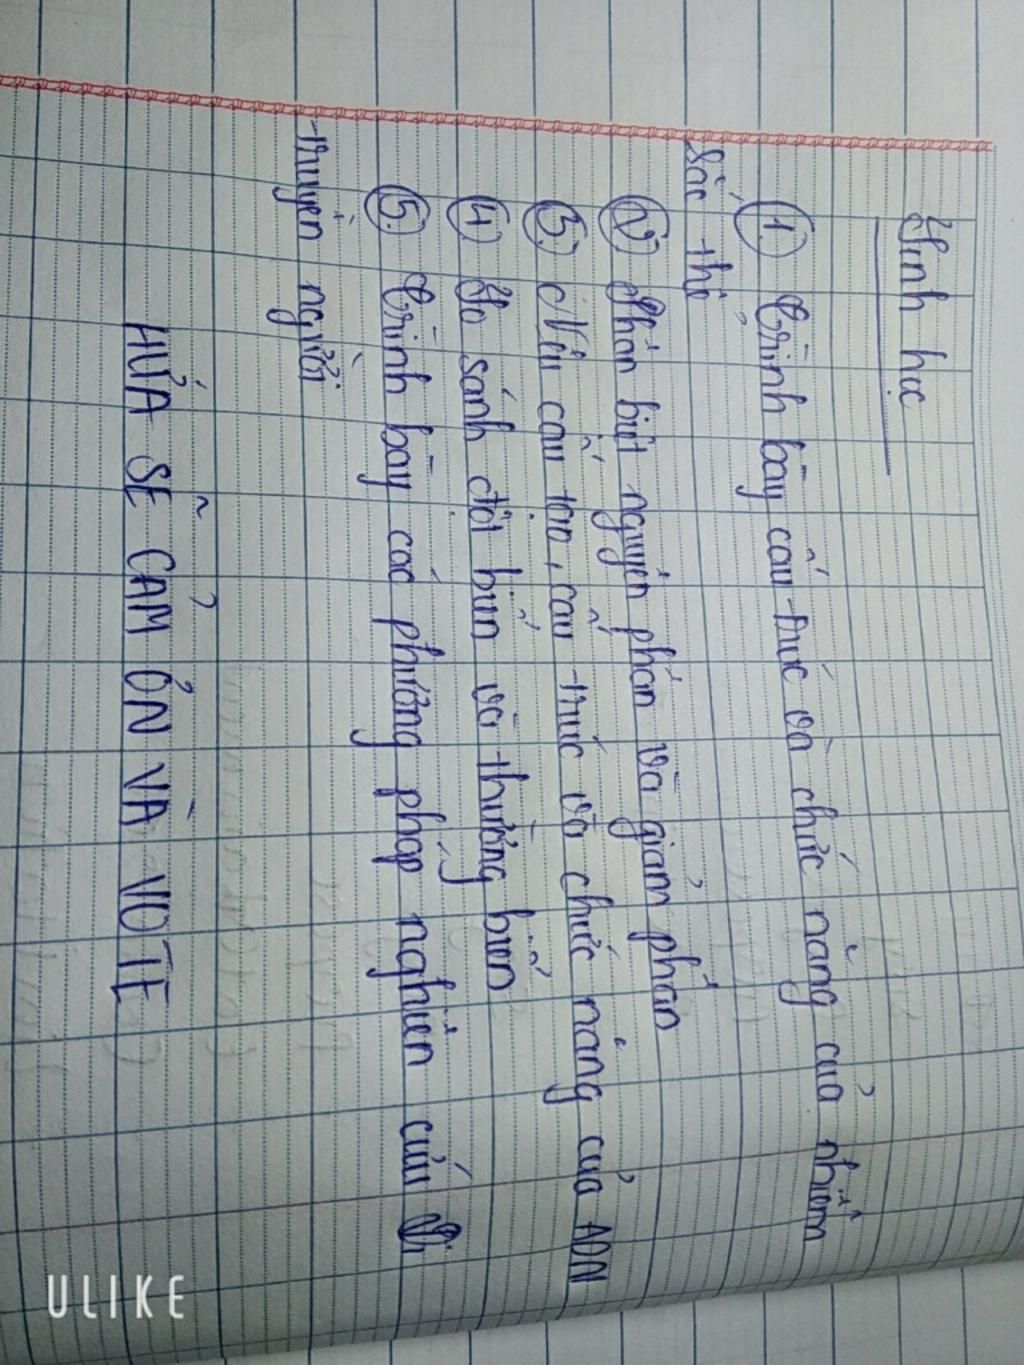 Sinh học
① Trình bày cấu trúc và chức năng của nhiễm
sắc thể
② Phân biệt nguyên phân và giảm phân
③ Nêu cấu tạo, cấu trúc và chức năng của ADN
④ So sánh đột biến và thường biến
⑤ Trình bày các phương pháp nghiên cứu di
truyền người
HỨA SẼ CẢM ƠN VÀ VOTE
ULIKE